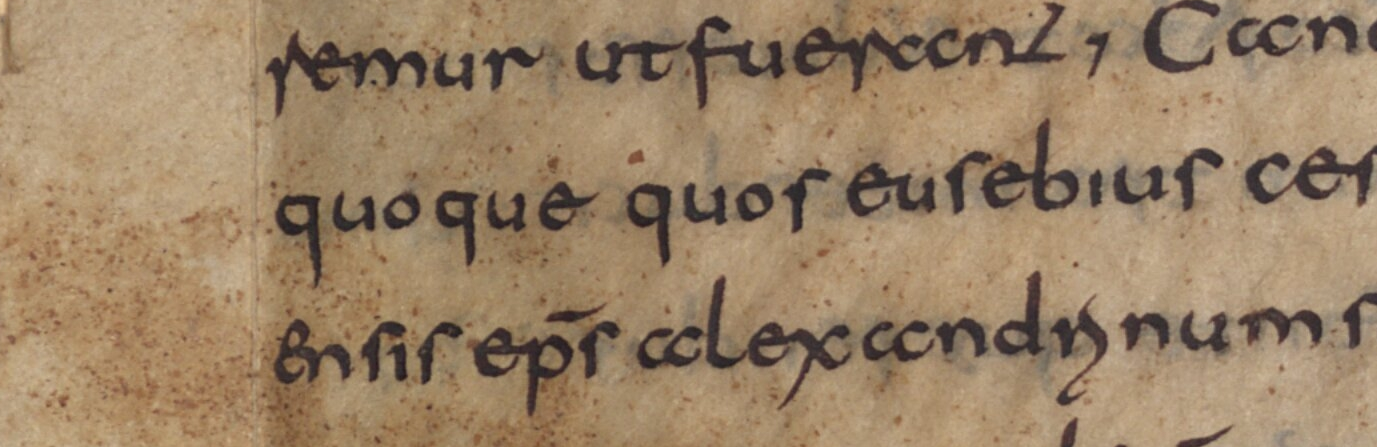 remur ut fuerant, Can
quoque quos eusebius ces
ensis ep̄s alexandrinum s